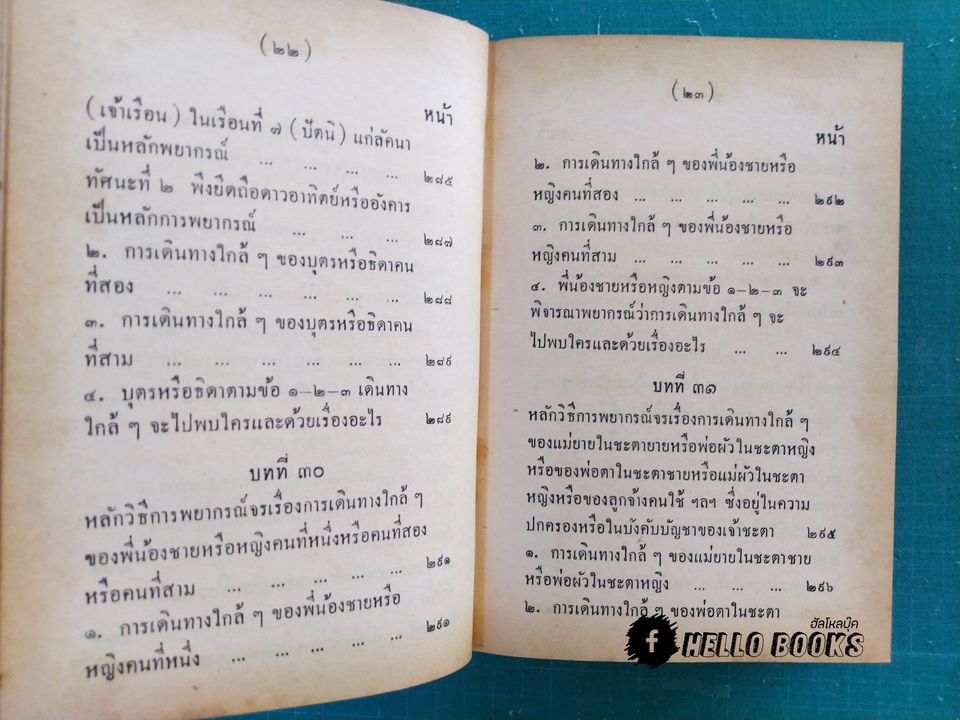 (๒๒)
หน้า
(เจ้าเรือน) ในเรือนที่ ๗ (ปัตนิ) แก่ลัคนา
เป็นหลักพยากรณ์ ... ... ... ๒๘๕
ทัศนะที่ ๒ พึงยึดถือดาวอาทิตย์หรืออังคาร
เป็นหลักการพยากรณ์ ... ... ... ๒๘๗
๒. การเดินทางใกล้ ๆ ของบุตรหรือธิดาคน
ที่สอง ... ... ... ... ... ... ๒๘๘
๓. การเดินทางใกล้ ๆ ของบุตรหรือธิดาคน
ที่สาม ... ... ... ... ... ... ๒๘๙
๔. บุตรหรือธิดาตามข้อ ๑-๒-๓ เดินทาง
ใกล้ ๆ จะไปพบใครและด้วยเรื่องอะไร ๒๘๙
บทที่ ๓๐
หลักวิธีการพยากรณ์จรเรื่องการเดินทางใกล้ ๆ
ของพี่น้องชายหรือหญิงคนที่หนึ่งหรือคนที่สอง
หรือคนที่สาม ... ... ... ... ... ๒๙๑
๑. การเดินทางใกล้ ๆ ของพี่น้องชายหรือ
หญิงคนที่หนึ่ง ... ... ... ... ... ๒๙๑
(๒๓)
หน้า
๒. การเดินทางใกล้ ๆ ของพี่น้องชายหรือ
หญิงคนที่สอง ... ... ... ... ... ๒๙๒
๓. การเดินทางใกล้ ๆ ของพี่น้องชายหรือ
หญิงคนที่สาม ... ... ... ... ... ๒๙๓
๔. พี่น้องชายหรือหญิงตามข้อ ๑-๒-๓ จะ
พิจารณาพยากรณ์ว่าการเดินทางใกล้ ๆ จะ
ไปพบใครและด้วยเรื่องอะไร ... ... ๒๙๔
บทที่ ๓๑
หลักวิธีการพยากรณ์จรเรื่องการเดินทางใกล้ ๆ
ของแม่ยายในชะตายายหรือพ่อผัวในชะตาหญิง
หรือของพ่อตาในชะตาชายหรือแม่ผัวในชะตา
หญิงหรือของลูกจ้างคนใช้ ฯลฯ ซึ่งอยู่ในความ
ปกครองหรือในบังคับบัญชาของเจ้าชะตา ๒๙๕
๑. การเดินทางใกล้ ๆ ของแม่ยายในชะตาชาย
หรือพ่อผัวในชะตาหญิง ... ... ... ๒๙๖
๒. การเดินทางใกล้ ๆ ของพ่อตาในชะตา
ฮัลโหลบุ๊ค
HELLO BOOKS